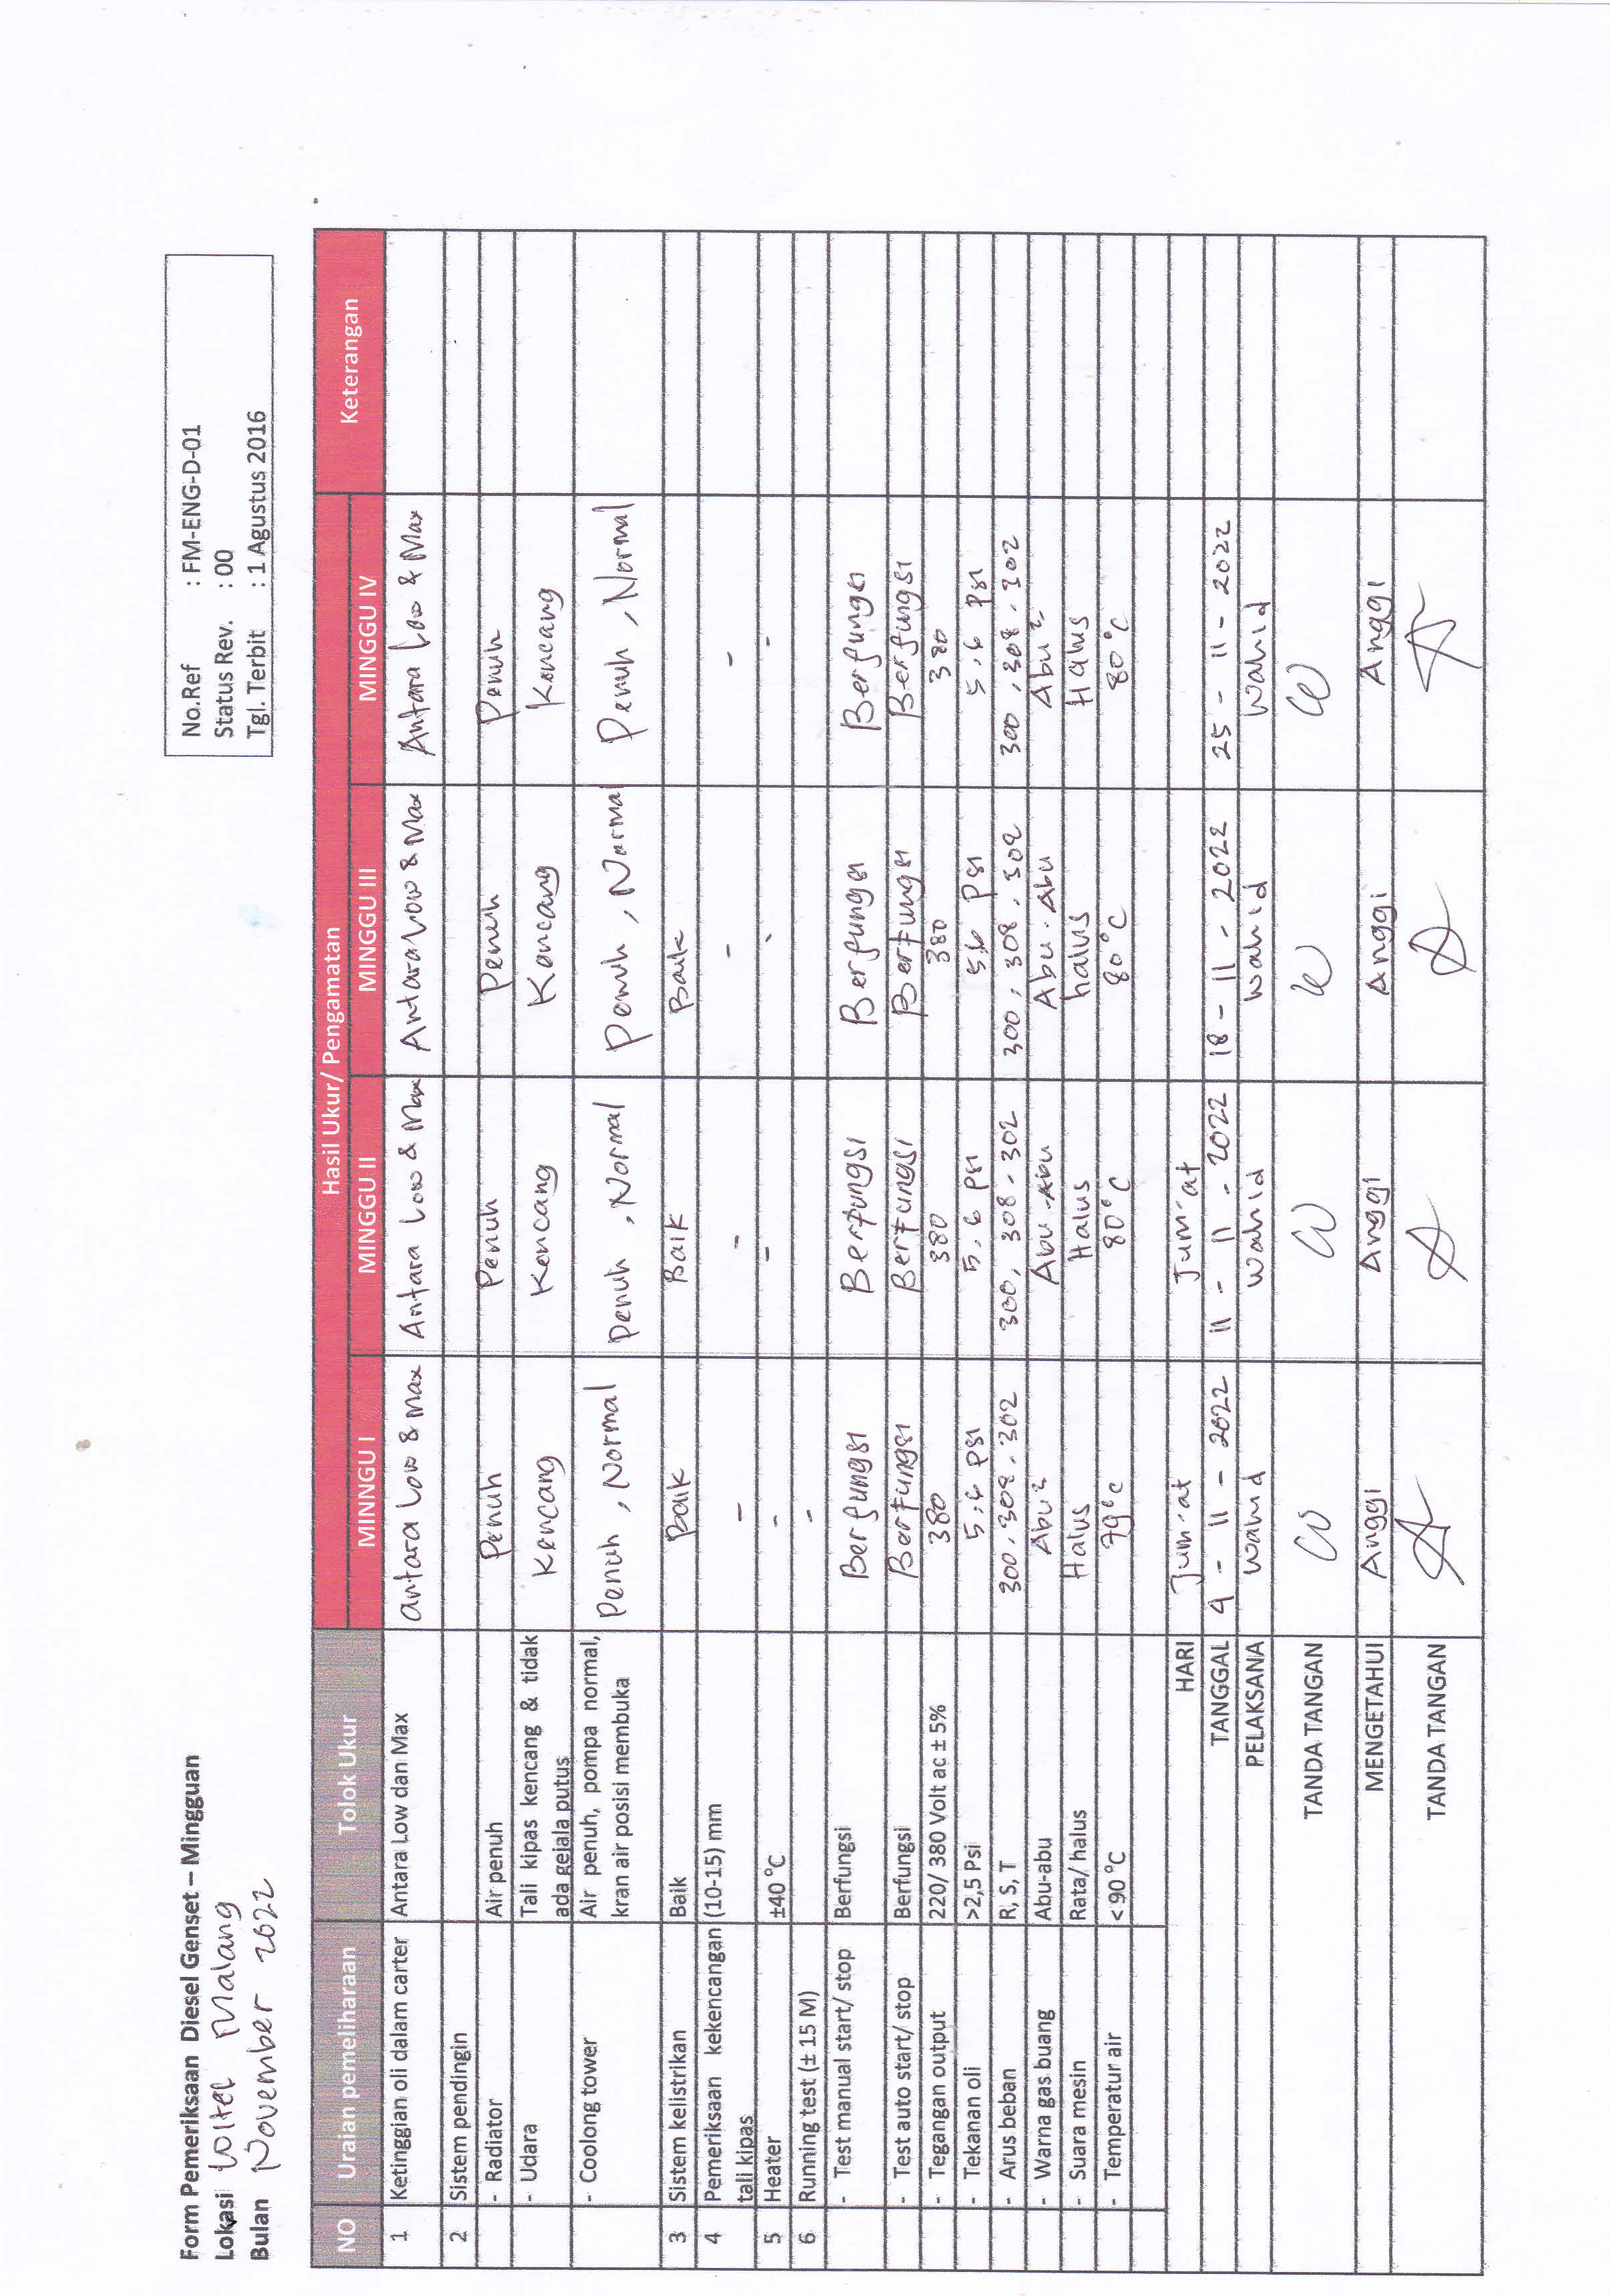 Form Pemeriksaan Diesel Genset – Mingguan
Lokasi Witel Malang
Bulan November 2022
No.Ref : FM-ENG-D-01
Status Rev. : 00
Tgl. Terbit : 1 Agustus 2016
NO Uraian pemeliharaan Tolok Ukur Hasil Ukur/ Pengamatan Keterangan
MINNGU I MINGGU II MINGGU III MINGGU IV
1 Ketinggian oli dalam carter Antara Low dan Max antara Low & Max Antara Low & Max Antara Low & Max Antara Low & Max
2 Sistem pendingin
- Radiator Air penuh Penuh Penuh Penuh Penuh
- Udara Tali kipas kencang & tidak Kencang Kencang Kencang Kencang
ada gejala putus
- Coolong tower Air penuh, pompa normal, Penuh , Normal Penuh , Normal Penuh , Normal Penuh , Normal
kran air posisi membuka
3 Sistem kelistrikan Baik Baik Baik Baik
4 Pemeriksaan kekencangan (10-15) mm - - - -
tali kipas
5 Heater ±40 °C - - - -
6 Running test (± 15 M) -
- Test manual start/ stop Berfungsi Berfungsi Berfungsi Berfungsi Berfungsi
- Test auto start/ stop Berfungsi Berfungsi Berfungsi Berfungsi Berfungsi
- Tegangan output 220/ 380 Volt ac ± 5% 380 380 380 380
- Tekanan oli >2,5 Psi 5,6 psi 5,6 psi 5,6 psi 5,6 psi
- Arus beban R, S, T 300, 308, 302 300, 308, 302 300, 308, 302 300, 308, 302
- Warna gas buang Abu-abu Abu² Abu-abu Abu-abu Abu²
- Suara mesin Rata/ halus Halus Halus halus Halus
- Temperatur air < 90 °C 79°C 80°C 80°C 80°C
HARI Jum'at Jum'at
TANGGAL 4 - 11 - 2022 11 - 11 - 2022 18 - 11 - 2022 25 - 11 - 2022
PELAKSANA Wahid Wahid Wahid Wahid
TANDA TANGAN
MENGETAHUI Anggi Anggi Anggi Anggi
TANDA TANGAN